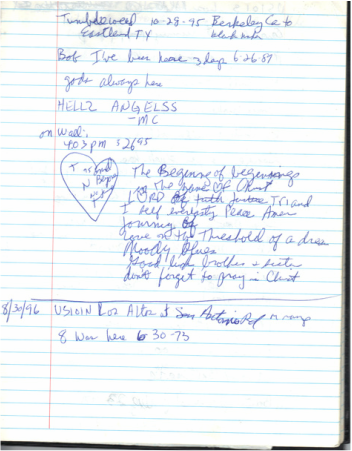 Tumbleweed 10-28-95 Berkeley Ca to
Eastland TX
Bob I've been here 3 days 6-26-87
gods always here
HELLZ ANGELSS
-MC
on Wed.
403pm
The Beginning of beginnings
in The name Of Christ
LORD of truth Justice TRI and
I self Peace Amen
Journey of
Love on the Threshold of a dream
Moody Blues
Good luck brothers & sister
don't forget to pray in Christ
8/30/96 USION Los Altos & San Antonio Rd
8 Was here 6 30-73